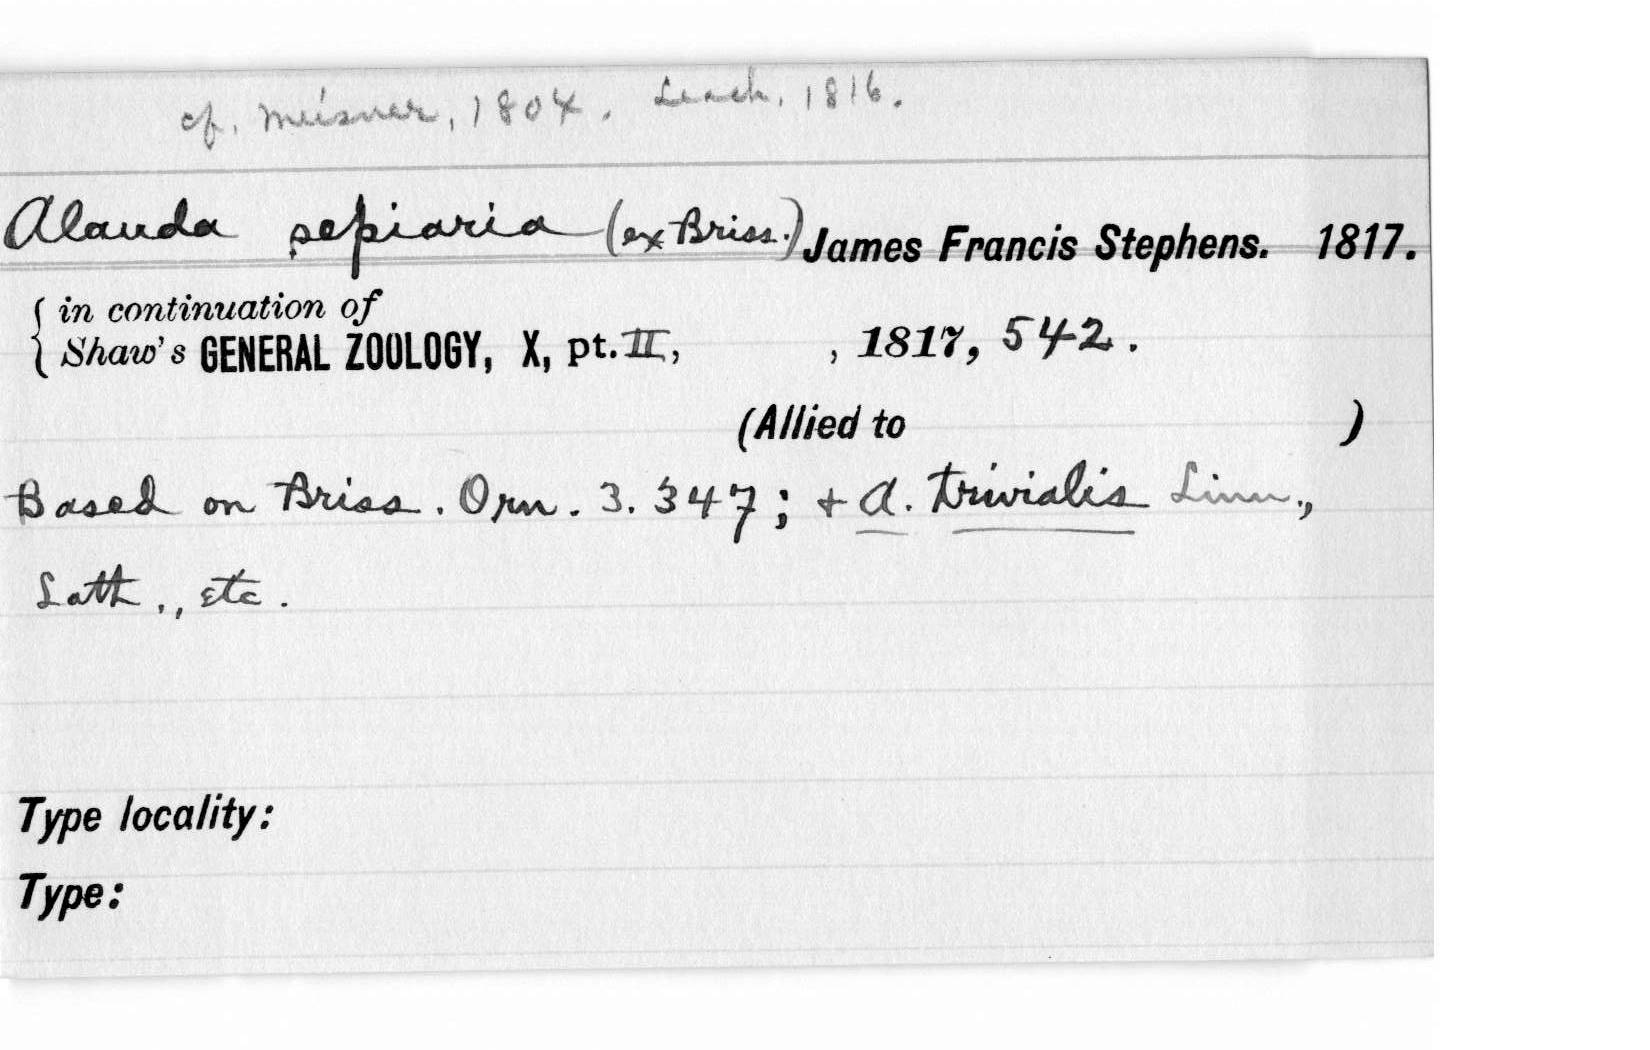 cf. Meisner, 1804. Leach, 1816.
Alauda sepiaria (ex Briss.) James Francis Stephens. 1817.
in continuation of
Shaw's GENERAL ZOOLOGY, X, pt. II, , 1817, 542.
(Allied to )
Based on Briss. Orn. 3. 347; + A. trivialis Linn.,
Lath., etc.
Type locality:
Type: